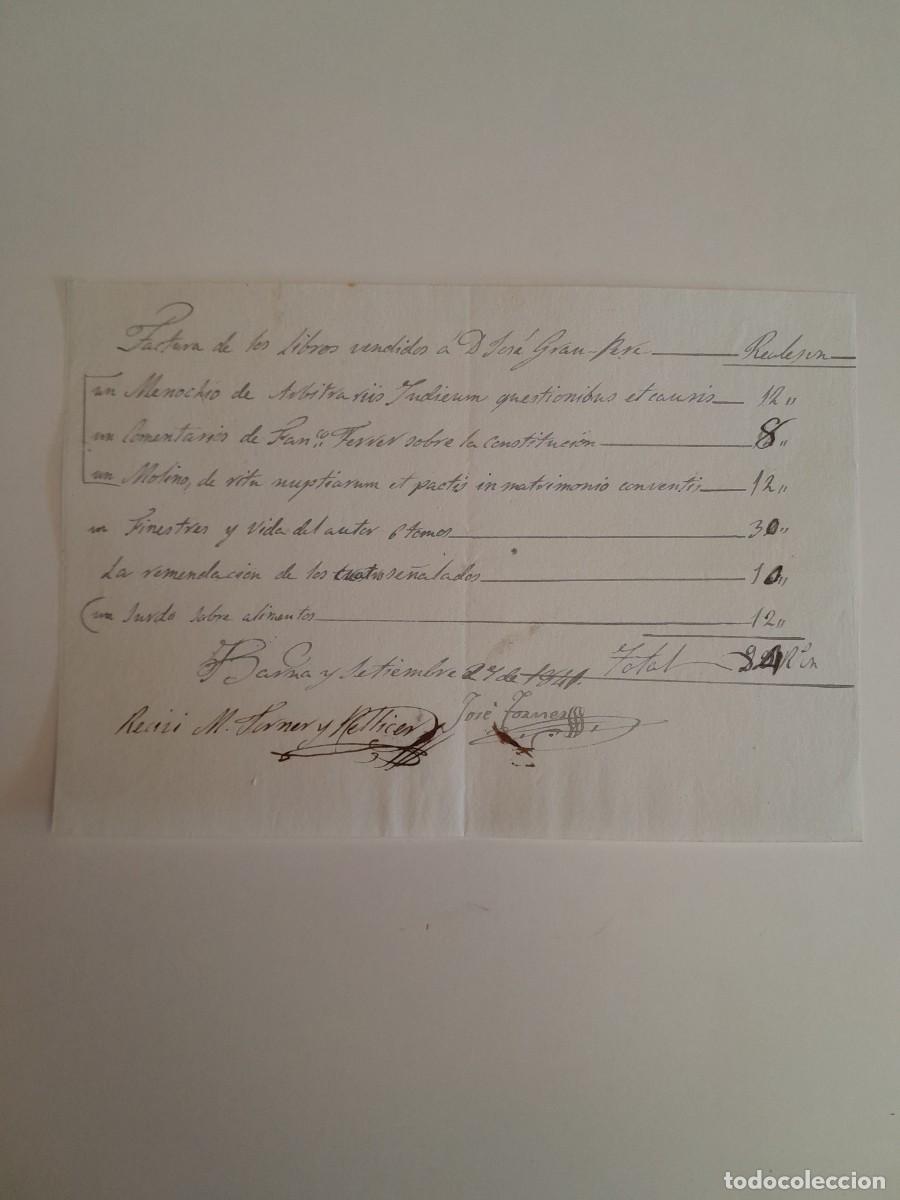 Factura de los Libros vendidos á D José Grau-Pera — Reales vn
un Menochio de Arbitrariis Judicum questionibus et causis — 12 "
un Comentarios de Fan.co Ferrer sobre la constitución — 8 "
un Molino, de ritu nuptiarum et pactis in matrimonio conventis — 12 "
un Finestres y vida del autor 6 tomos — 30 "
La remendacion de los cuatro señalados — 10 "
un Surdo sobre alimentos — 12 "
Barna y Setiembre 27 de 1841. Total — 84 Rs vn
Recivi M. Torner y Pellicer José Torner
todocoleccion